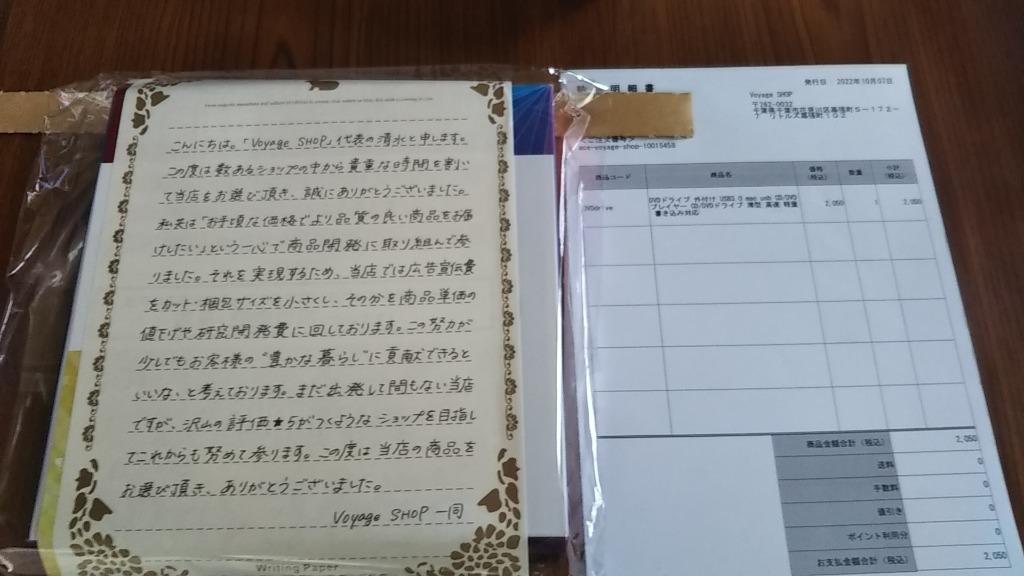 こんにちは。「Voyage SHOP」代表の清水と申します。
この度は数あるショップの中から貴重な時間を割い
て当店をお選び頂き、誠にありがとうございました。
私共は「お手頃な価格でより品質の良い商品をお届
けしたい」という一心で商品開発に取り組んで参
りました。それを実現するため、当店では広告宣伝費
をカット・梱包サイズを小さくし、その分を商品単価の
値下げや研究開発費に回しております。この努力が
少しでもお客様の"豊かな暮らし"に貢献できると
いいな、と考えております。まだ出発して間もない当店
ですが、沢山の評価★5がつくようなショップを目指し
てこれからも努めて参ります。この度は当店の商品を
お選び頂き、ありがとうございました。
Voyage SHOP 一同
Writing Paper
明細書
発行日 2022年10月07日
Voyage SHOP
〒262-0032
千葉県千葉市花見川区幕張町5-172-
voyage-shop-10015458
商品コード 商品名 価格(税込) 数量 小計(税込)
DVDドライブ 外付け USB3.0 CD/DVD 2,050 1 2,050
プレイヤー CD/DVDドライブ 薄型 高速 軽量
書き込み対応
商品金額合計(税込) 2,050
送料 0
手数料 0
値引き 0
ポイント利用分 0
お支払金額合計(税込) 2,050